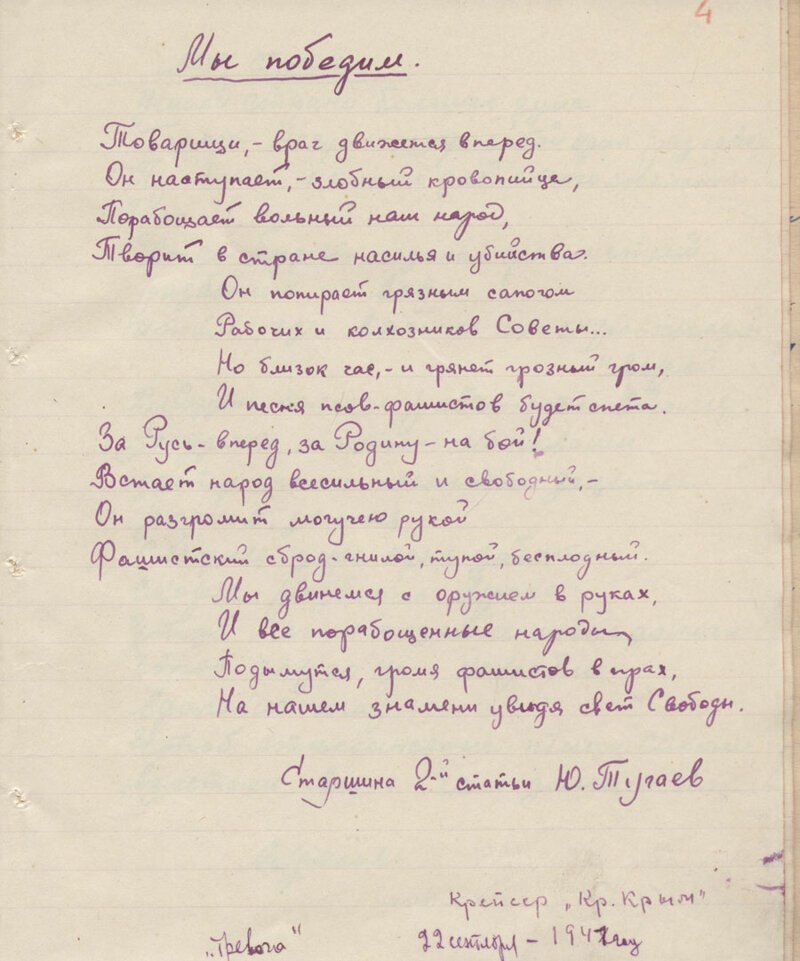 4
Мы победим.
Товарищи,- враг движется вперед.
Он наступает,- злобный кровопийца,
Порабощает вольный наш народ,
Творит в стране насилья и убийства.
Он попирает грязным сапогом
Рабочих и колхозников Советы...
Но близок час,- и грянет грозный гром,
И песня псов-фашистов будет спета.
За Русь- вперед, за Родину - на бой!
Встает народ всесильный и свободный,-
Он разгромит могучею рукой
Фашистский сброд- гнилой, тупой, бесплодный.
Мы двинемся с оружием в руках,
И все порабощенные народы,
Подымутся, громя фашистов в прах,
На нашем знамени увидя свет Свободы.
Старшина 2-й статьи Ю. Тугаев
Крейсер „Кр. Крым"
„Тревога" 22 сентября -